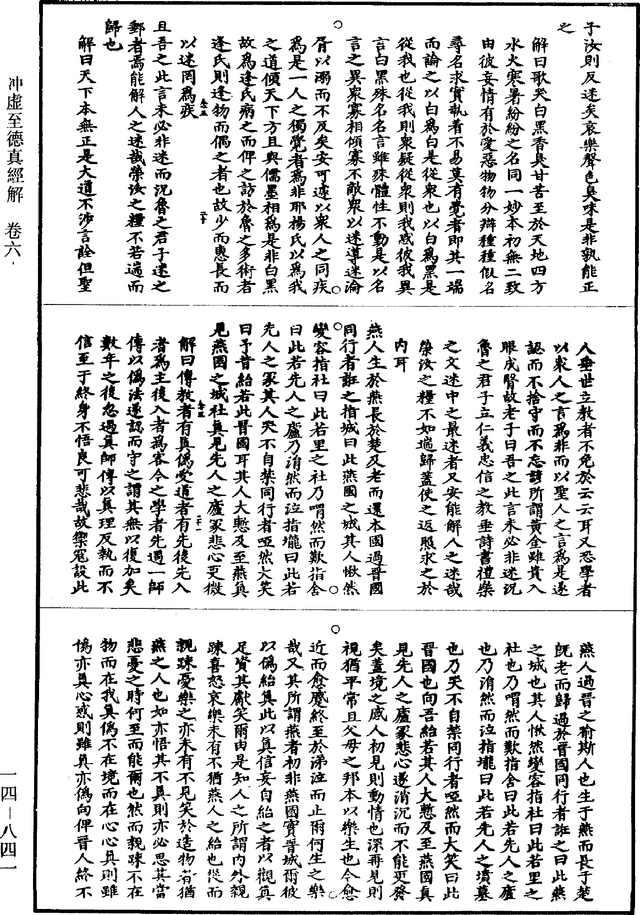 子汝則反迷矣哀樂聲色臭味是非孰能正
之
解曰歌哭白黑香臭甘苦至於天地四方
水火寒暑紛紛之名同一妙本初無二致
由彼妄情有於愛惡物物分辯種種假名
尋名求實執著不易莫有覺者即其一端
而論之以白爲白是從衆也以白爲黑是
從我也從我則衆疑從衆則我惑彼我異
言白黑殊名名言雖殊體性不動是以名
言之異衆寡相傾寡不敵衆以迷導迷淪
胥以溺而不反矣安可遽以衆人之同疾
爲是一人之獨覺者爲非耶楊氏以爲我
之道傾天下方且與儒墨相爲是非白黑
故爲逢氏病之而俾之訪於魯之多術者
逢氏則逢物而偶之者也故少而惠長而
以迷罔爲疾
且吾之此言未必非迷而況魯之君子迷之
郵者焉能解人之迷哉榮汝之糧不若遄而
歸也
解曰天下本無正是大道不涉言詮但聖
人垂世立教者不免於云云耳又恐學者
以衆人之言爲非而以聖人之言爲是遂
認而不捨守而不忘該所謂黃金雖貴入
眼成翳故老子曰吾之此言未必非迷況
魯之君子立仁義忠信之教垂詩書禮樂
之文迷中之最迷者又安能解人之迷哉
榮汝之糧不如遄歸蓋使之返照求之於
內耳
燕人生於燕長於楚及老而還本國過晉國
同行者誑之指城曰此燕國之城其人愀然
變容指社曰此若里之社乃喟然而歎指舍
曰此若先人之廬乃涓然而泣指壠曰此若
先人之冢其人哭不自禁同行者啞然大笑
曰予昔紿若此晉國耳其人大慙及至燕真
見燕國之城社真見先人之廬冢悲心更微
解曰傳教者有真偽受道者有先後先入
者爲主後入者爲客今之學者先遇一師
傳以偽法遂認而守之謂其無以復加矣
數年之後忽遇真師傳以真理反執而不
信至于終身不悟良可悲哉故禦寇設此
燕人過晉之喻斯人也生于燕而長于楚
旣老而歸過於晉國同行者誑之曰此燕
之城也其人愀然變容指社曰此若里之
社也乃喟然而歎指舍曰此若先人之廬
也乃涓然而泣指壠曰此若先人之墳墓
也乃哭不自禁同行者啞然而大笑曰此
晉國也向吾紿若其人大慙及至燕國真
見先人之廬冢悲心遂消沉而不能更發
矣蓋境之感人初見則動情也深再見則
視猶平常且父母之邦本以樂生也今愈
近而愈慼終至於涕泣而止爾何生之樂
哉又其所謂燕者初非燕國實晉城爾彼
以偽紿真此以真信妄自紿之者以觀真
足資其獻笑爾由是知人之所謂內外親
踈喜怒哀樂未有不猶燕人之紿也從而
親踈憂樂之亦未有不見笑於造物者猶
燕之人也如亦悟其不真則亦必思其當
悲憂之時何至而能爾也然而親踈不在
物而在我真偽不在境而在心心真則雖
偽亦真心惑則雖真亦偽向俾晉人終不
冲虛至德真經解　卷六
一四—八四一